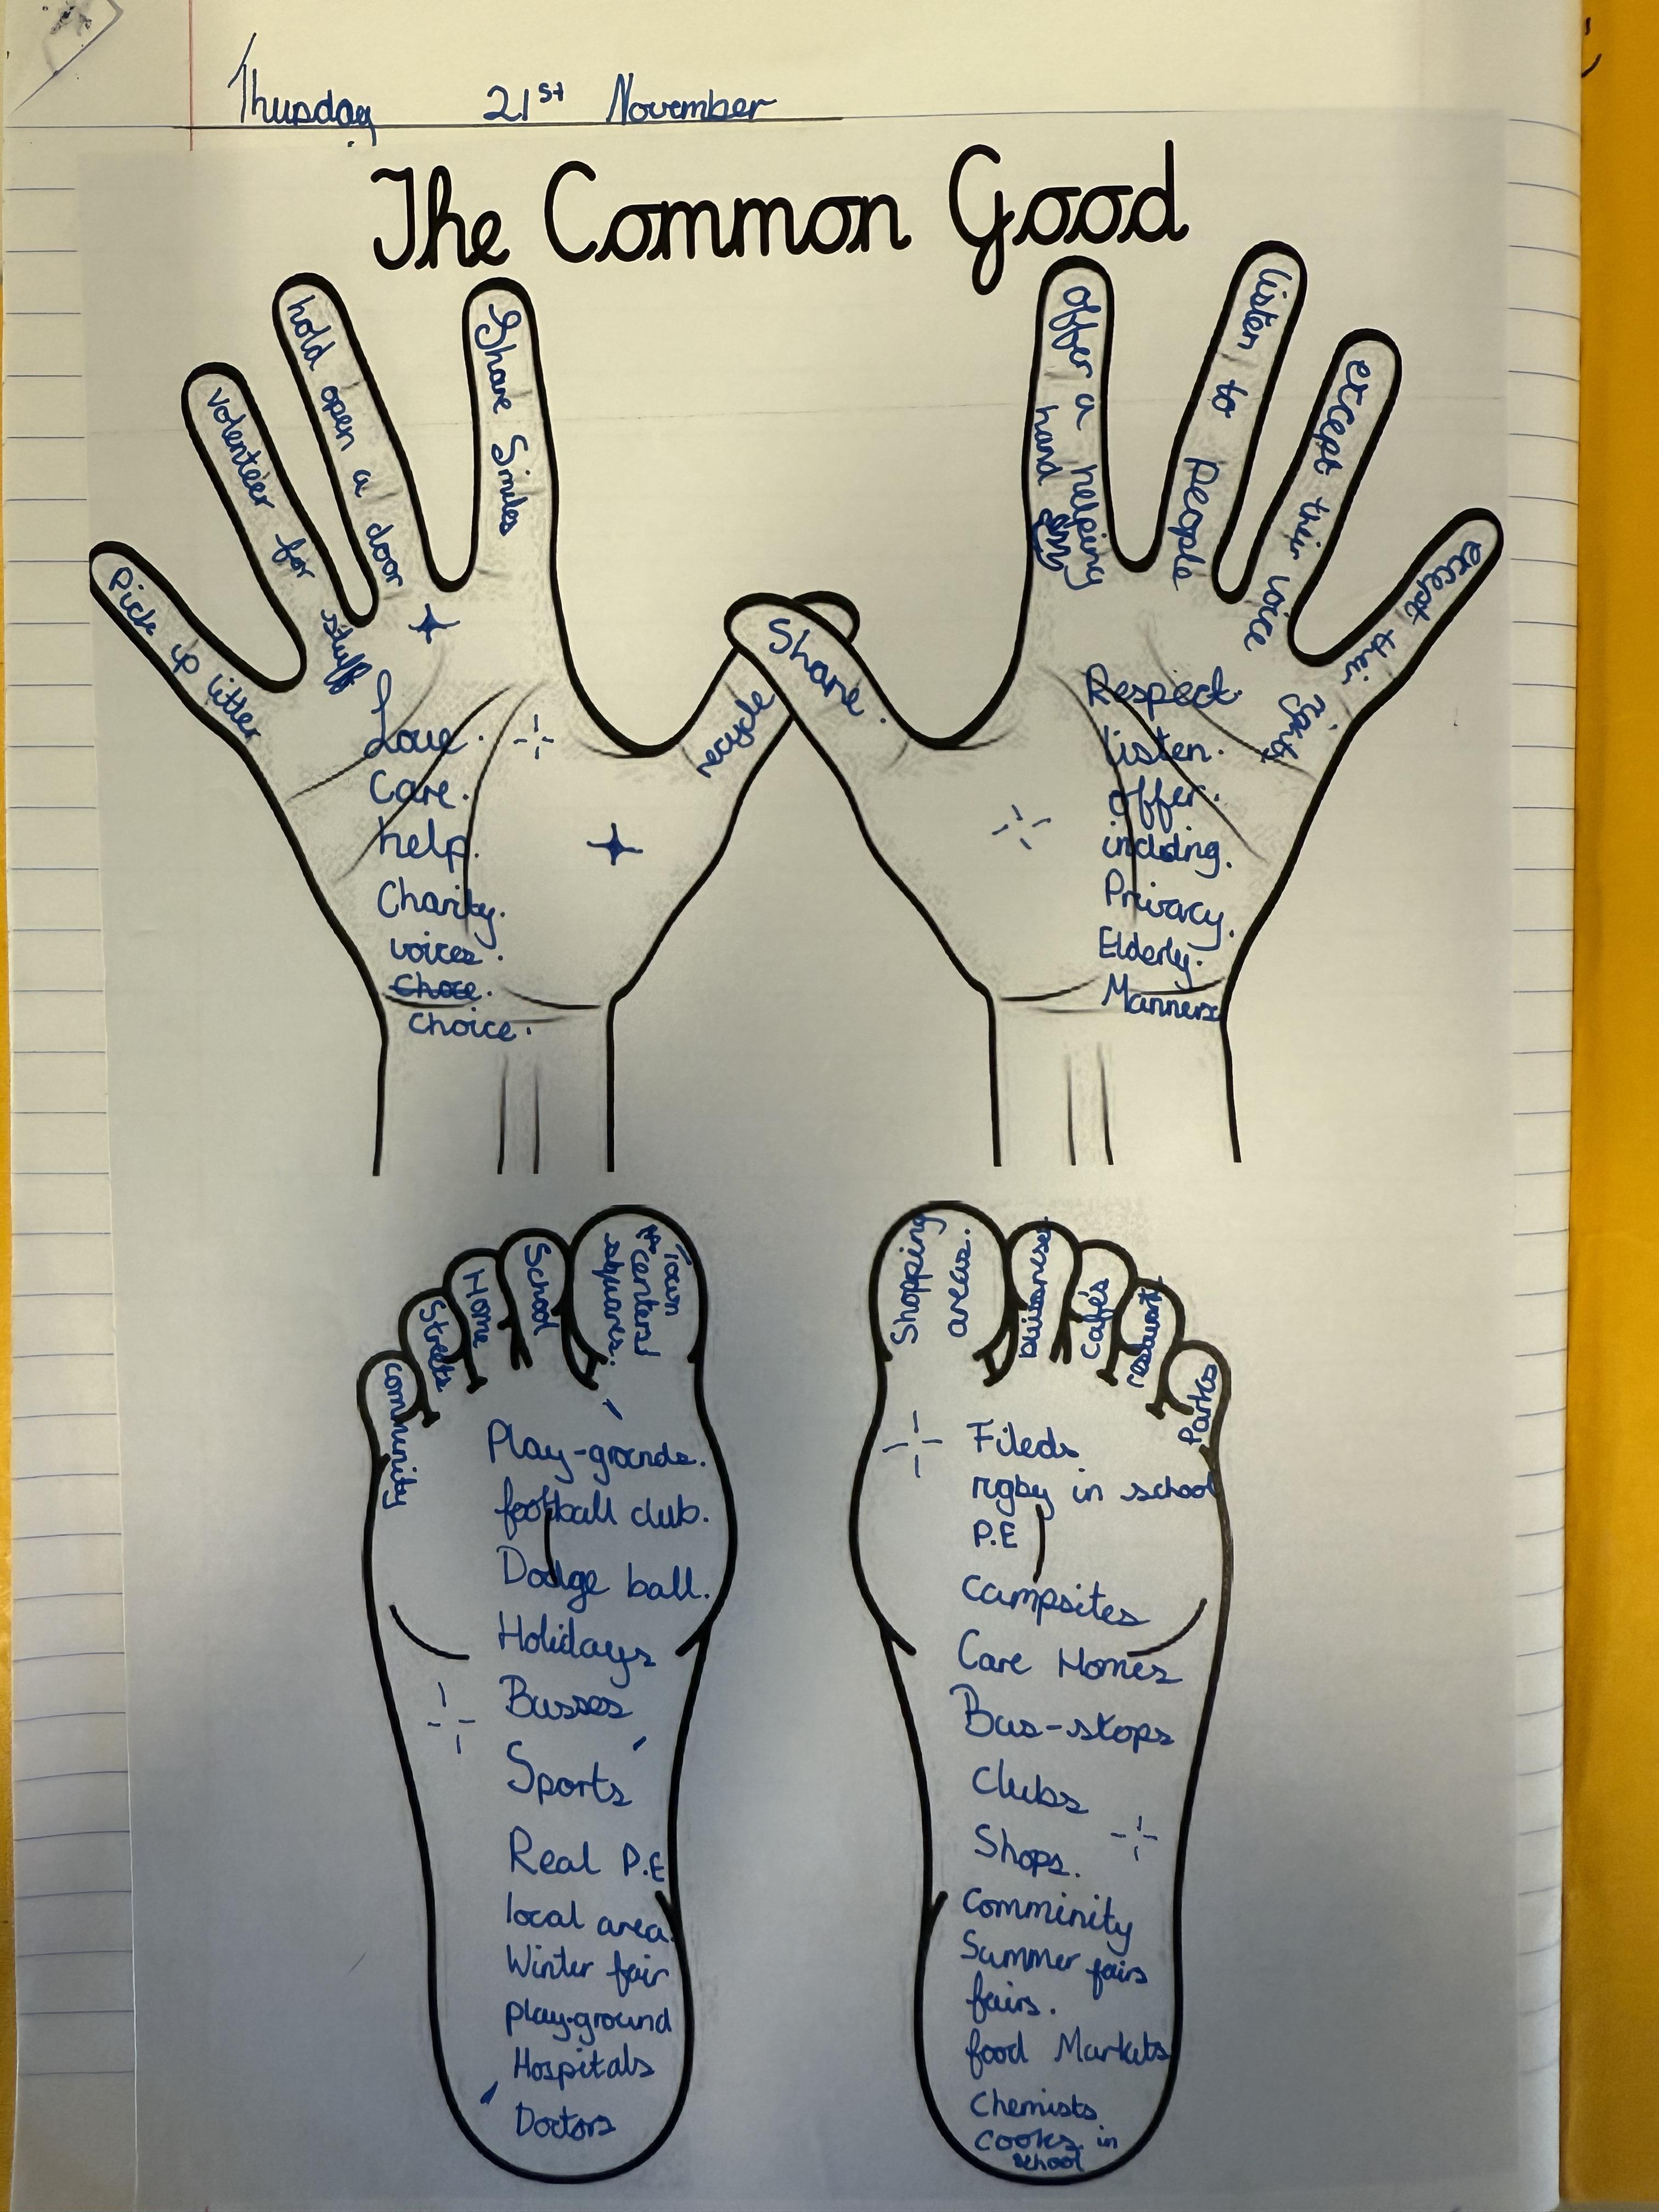 Thursday 21st November
The Common Good
Pick up litter
volenteer for stuff
hold open a door
Share Smiles
recycle
Love.
Care.
help.
Charity.
voices.
Choce.
choice.
Share.
offer a helping
hand
listen to people
except thir voice
except their rights
Respect.
listen.
offer.
including.
Privacy.
Elderly.
Manners
community
Streets
Home
School
Town
centers/
squares.
Play-grounds.
football club.
Dodge ball.
Holidays
Busses
Sports
Real P.E
local area.
Winter fair
play-ground
Hospitals
Doctors
Shopping
areas.
Cafés
Parks
Fileds
rugby in school
P.E
campsites
Care Homes
Bus-stops
Clubs
Shops.
Comminity
Summer fairs
fairs.
food Markets
Chemists
Cooks in
school